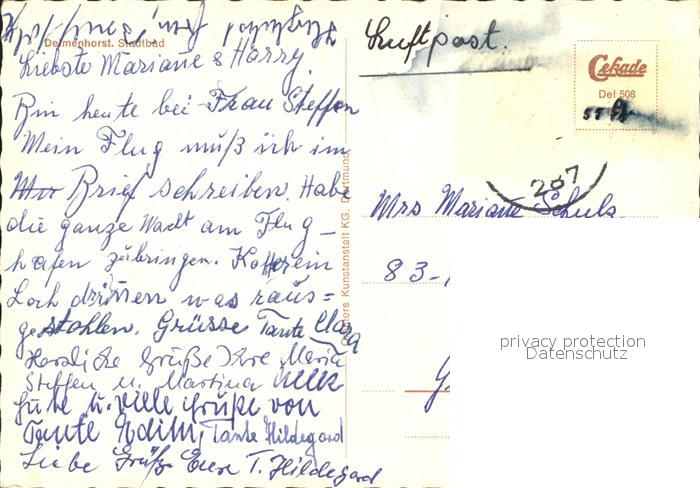 Delmenhorst. Stadtbad
Liebste Mariane & Harry
Bin heute bei Frau Steffen
Mein Flug muß ich im
Brief schreiben. Habe
die ganze Nacht am Flug-
hafen zubringen.
Loch drinnen was raus=
gestohlen. Grüsse Tante Clara
Herzliche Grüße Ihre Maria
Steffen u. Martina Alles
Gute u. viele Grüße von
Tante Edith, Tante Hildegard
Liebe Grüße Eure T. Hildegard
Luftpost.
Cekade
Def 508
55 Pf
207
Mrs Mariane Schulz
83-
Kunstanstalt KG, Dortmund
privacy protection
Datenschutz